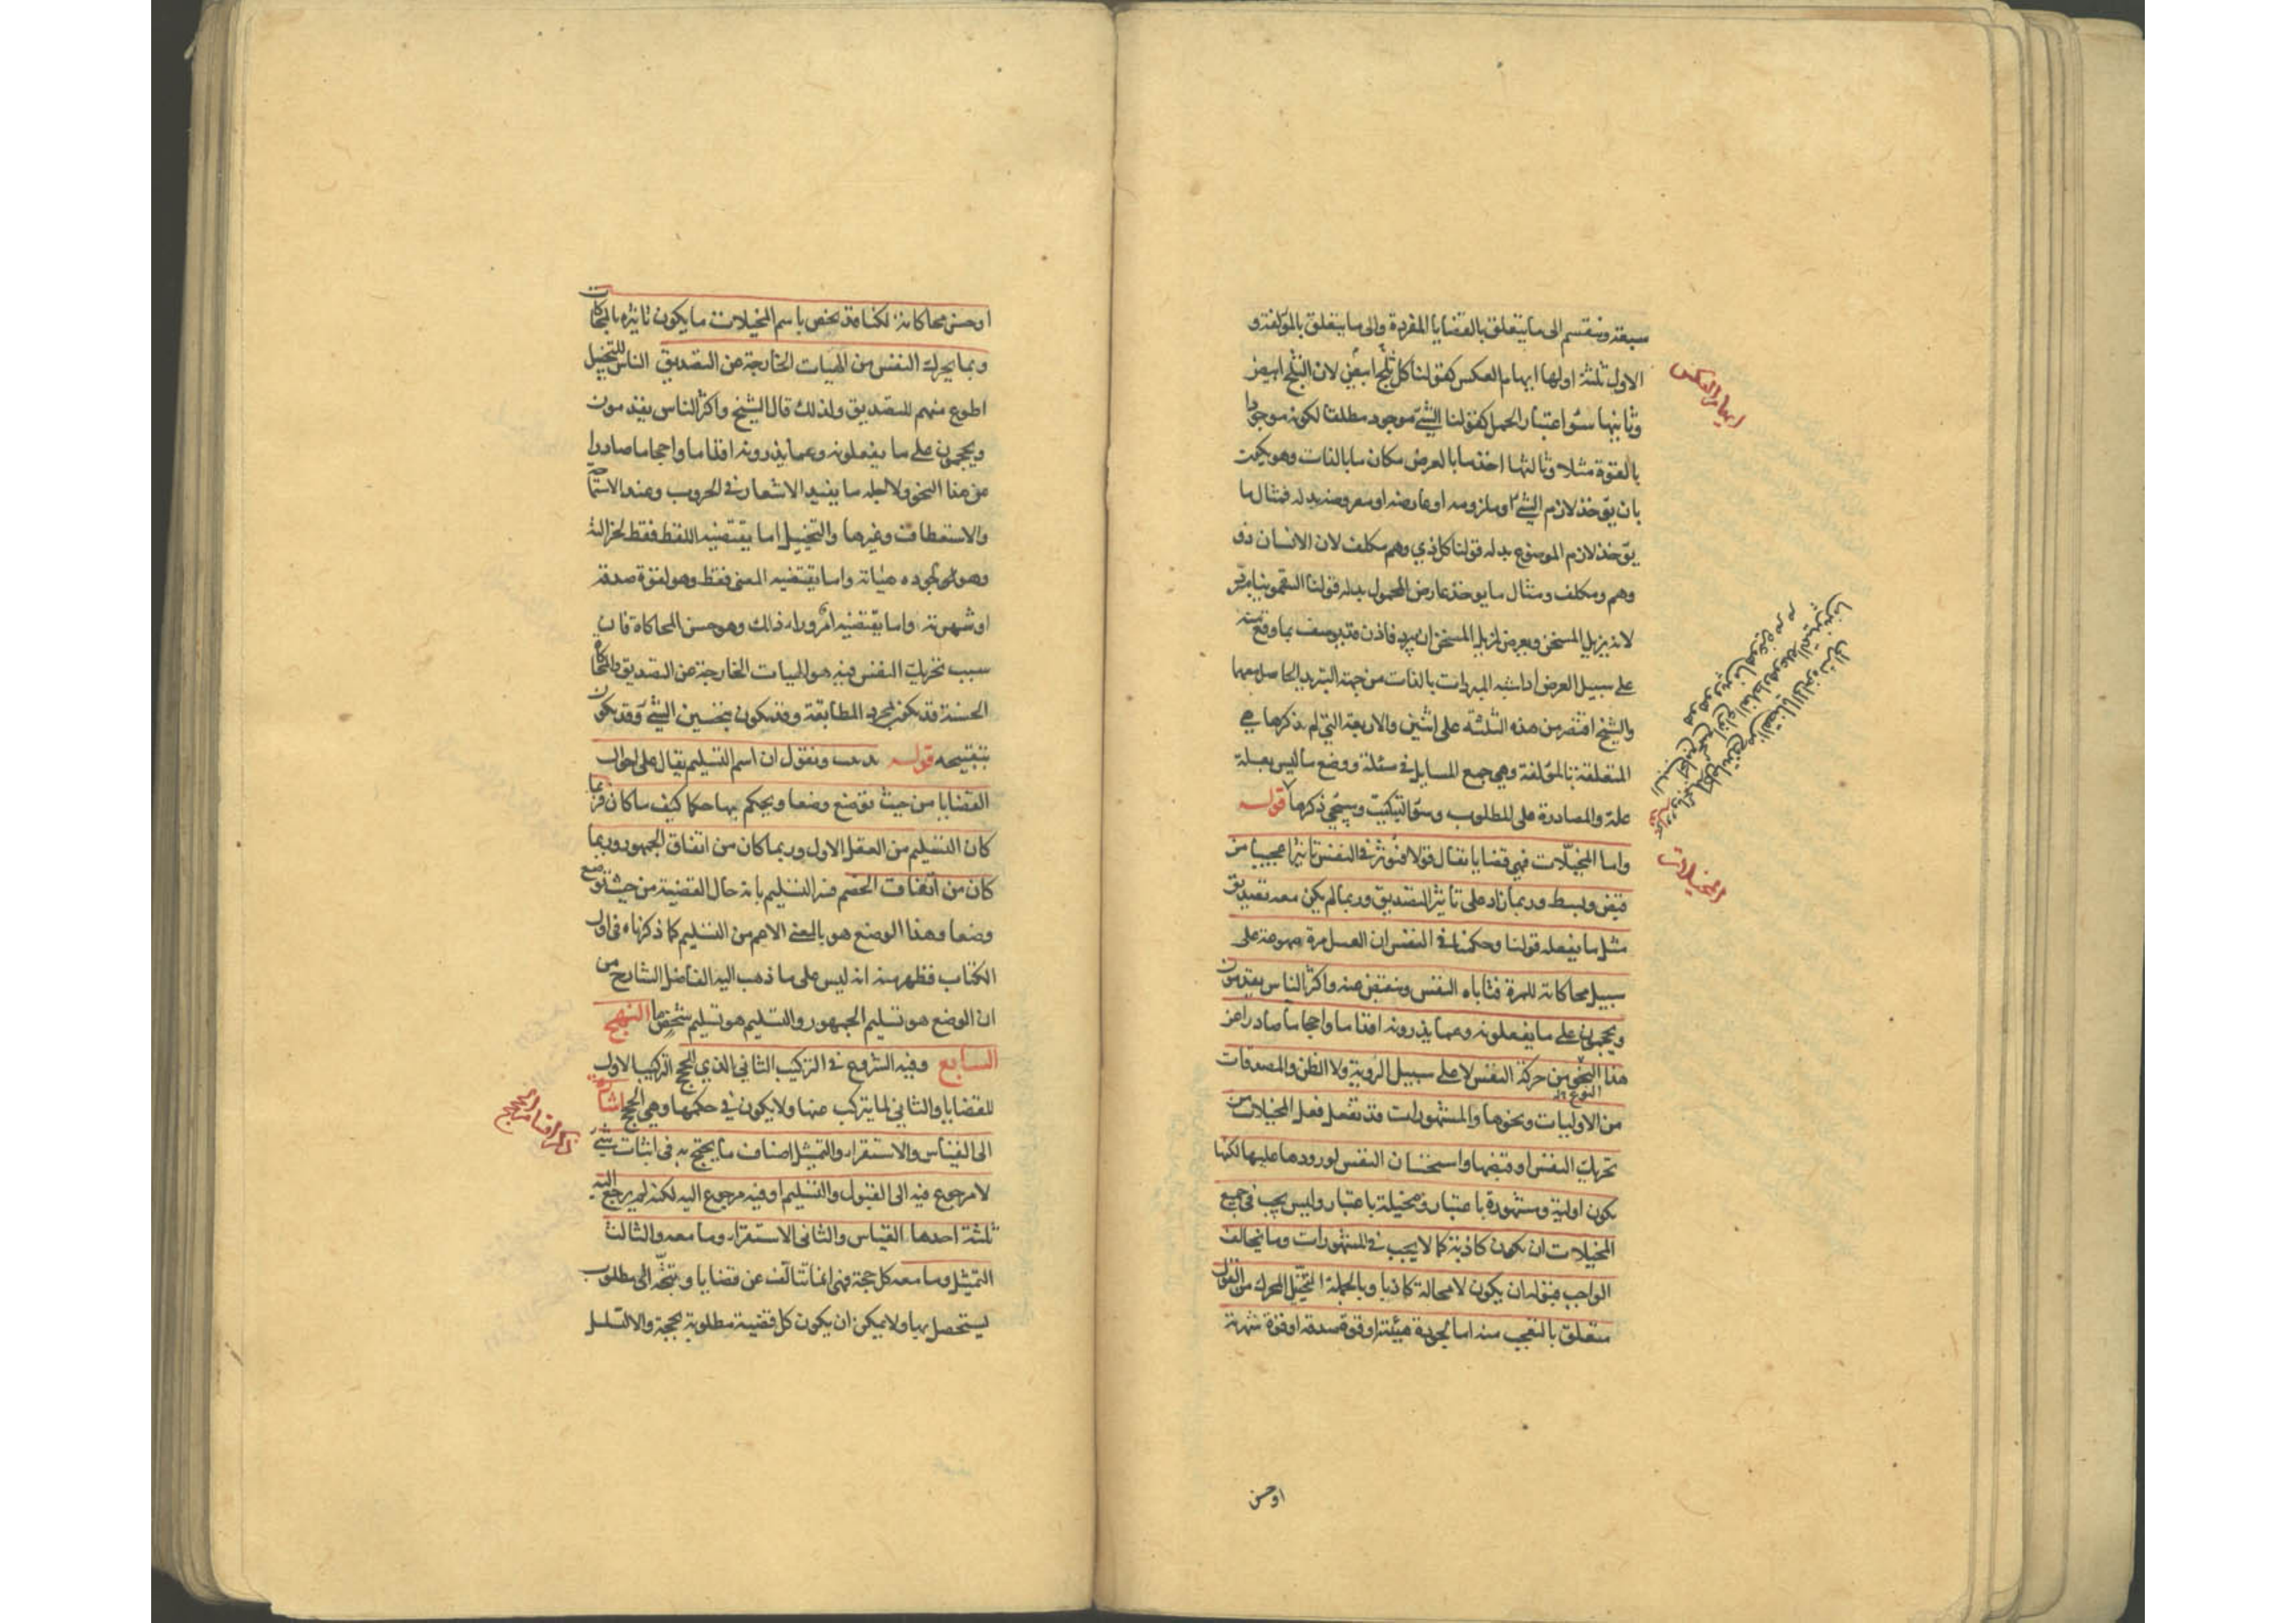 سبعة وينقسم الى ما يتعلق بالقضايا المفردة والى ما يتعلق بالمؤلفة و
الاول ثلثة اولها ايهام العكس كقولنا كل ثلج ابيض لان الثلج ابيض
وثانيها سوء اعتبار الحمل كقولنا الشئ موجود مطلقا لكونه موجودا
بالقوة مثلا وثالثها اخذ ما بالعرض مكان ما بالذات وهو يكون
بان يؤخذ لازم الشئ او ملزومه او عارضه او معروضه بدله فمثال ما
يؤخذ لازم الموضوع بدله قولنا كل ذي وهم مكلف لان الانسان ذو
وهم ومكلف ومثال ما يوخذ عارض المحمول بدله قولنا السقمونيا مبرد
لانه يزيل المسخن ويعرض لمزيل المسخن ان يبرد فاذن قد يوصف بما وقع منه
على سبيل العرض اذا شبه المبردات بالذات من جهة التبريد الحاصل معهما
والشيخ اقتصر من هذه الثلثة على اثنين والاربعة التي لم يذكرها هي
المتعلقة بالمؤلفة وهي جمع المسايل في مسئلة ووضع ما ليس بعلة
علة والمصادرة على المطلوب وسوء التركيب وسيجئ ذكرها قوله
واما المخيلات فهي قضايا تقال قولا فتؤثر في النفس تاثيرا عجيبا من
قبض وبسط وربما زاد على تاثير التصديق وربما لم يكن معه تصديق
مثل ما يفعله قولنا وحكمنا في النفس ان العسل مرة مهوعة على
سبيل محاكاته للمرة فتاباه النفس وتنقبض عنه واكثر الناس يقدمون
ويحجمون على ما يفعلونه وعما يذرونه اقداما واحجاما صادرا عن
هذا النحو من حركة النفس لا على سبيل الروية ولا الظن والمصدقات
النوع
من الاوليات ونحوها والمشهورات قد تفعل فعل المخيلات من
تحريك النفس او قبضها واستحسان النفس لورودها عليها لكنها
يكون اولية ومشهورة باعتبار ومخيلة باعتبار وليس يجب في جميع
المخيلات ان تكون كاذبة كما لا يجب في المشهورات وما يخالف
الواجب قبوله ان يكون لا محالة كاذبا وبالجملة التخييل المحرك من القول
متعلق بالتعجب منه اما لجودة هيئته او قوة صدقه او قوة شهرته
او حسن
ايهام العكس
المخيلات
او حسن محاكاته لكنا قد نخص باسم المخيلات ما يكون تاثيره بالمحاكات
وبما يحرك النفس من الهيات الخارجة عن التصديق الناس للتخييل
اطوع منهم للتصديق ولذلك قال الشيخ واكثر الناس يقدمون
ويحجمون على ما يفعلونه وعما يذرونه اقداما واحجاما صادرا
عن هذا النحو ولاجله ما يفيد الاشعار في الحروب وعند الاستماحة
والاستعطاف وغيرها والتخييل اما يقتضيه اللفظ فقط لجزالته
وهو لجوده هياته واما يقتضيه المعنى فقط وهو لقوة صدقه
او شهرته واما يقتضيه امر وراء ذلك وهو حسن المحاكاة فان
سبب تحريك النفس فيه هو الهيات الخارجة عن التصديق والمحاكاة
الحسنة قد يكون لمجرد المطابقة وقد يكون بتحسين الشئ وقد يكون
بتقبيحه قوله ونقول ان اسم التسليم يقال على احوال
القضايا من حيث توضع وضعا ويحكم بها حكما كيف ما كان فربما
كان التسليم من العقل الاول وربما كان من اتفاق الجمهور وربما
كان من اتفاق الخصم فسر التسليم بانه حال القضية من حيث توضع
وضعا وهذا الوضع هو بالمعنى الاعم من التسليم كما ذكرناه في اول
الكتاب فظهر منه انه ليس على ما ذهب اليه الفاضل الشارح من
ان الوضع هو تسليم الجمهور والتسليم هو تسليم شخص ما النهج
السابع وفيه الشروع في التركيب الثاني الذي للحجج التركيب الاول
للقضايا والثاني لما يتركب عنها ولا يكون في حكمها وهي الحجج اشارة
الى القياس والاستقراء والتمثيل اصناف ما يحتج به في اثبات شئ
لا مرجوع فيه الى القبول والتسليم او فيه مرجوع اليه لكنه لم يرجع اليه
ثلثة احدها القياس والثاني الاستقراء وما معه والثالث
التمثيل وما معه كل حجة فهي انما تتالف عن قضايا وتتجه الى مطلوب
يستحصل بها ولا يمكن ان يكون كل قضية مطلوبة بحجة والا لتسلسل
ذكر اقسام الحجج